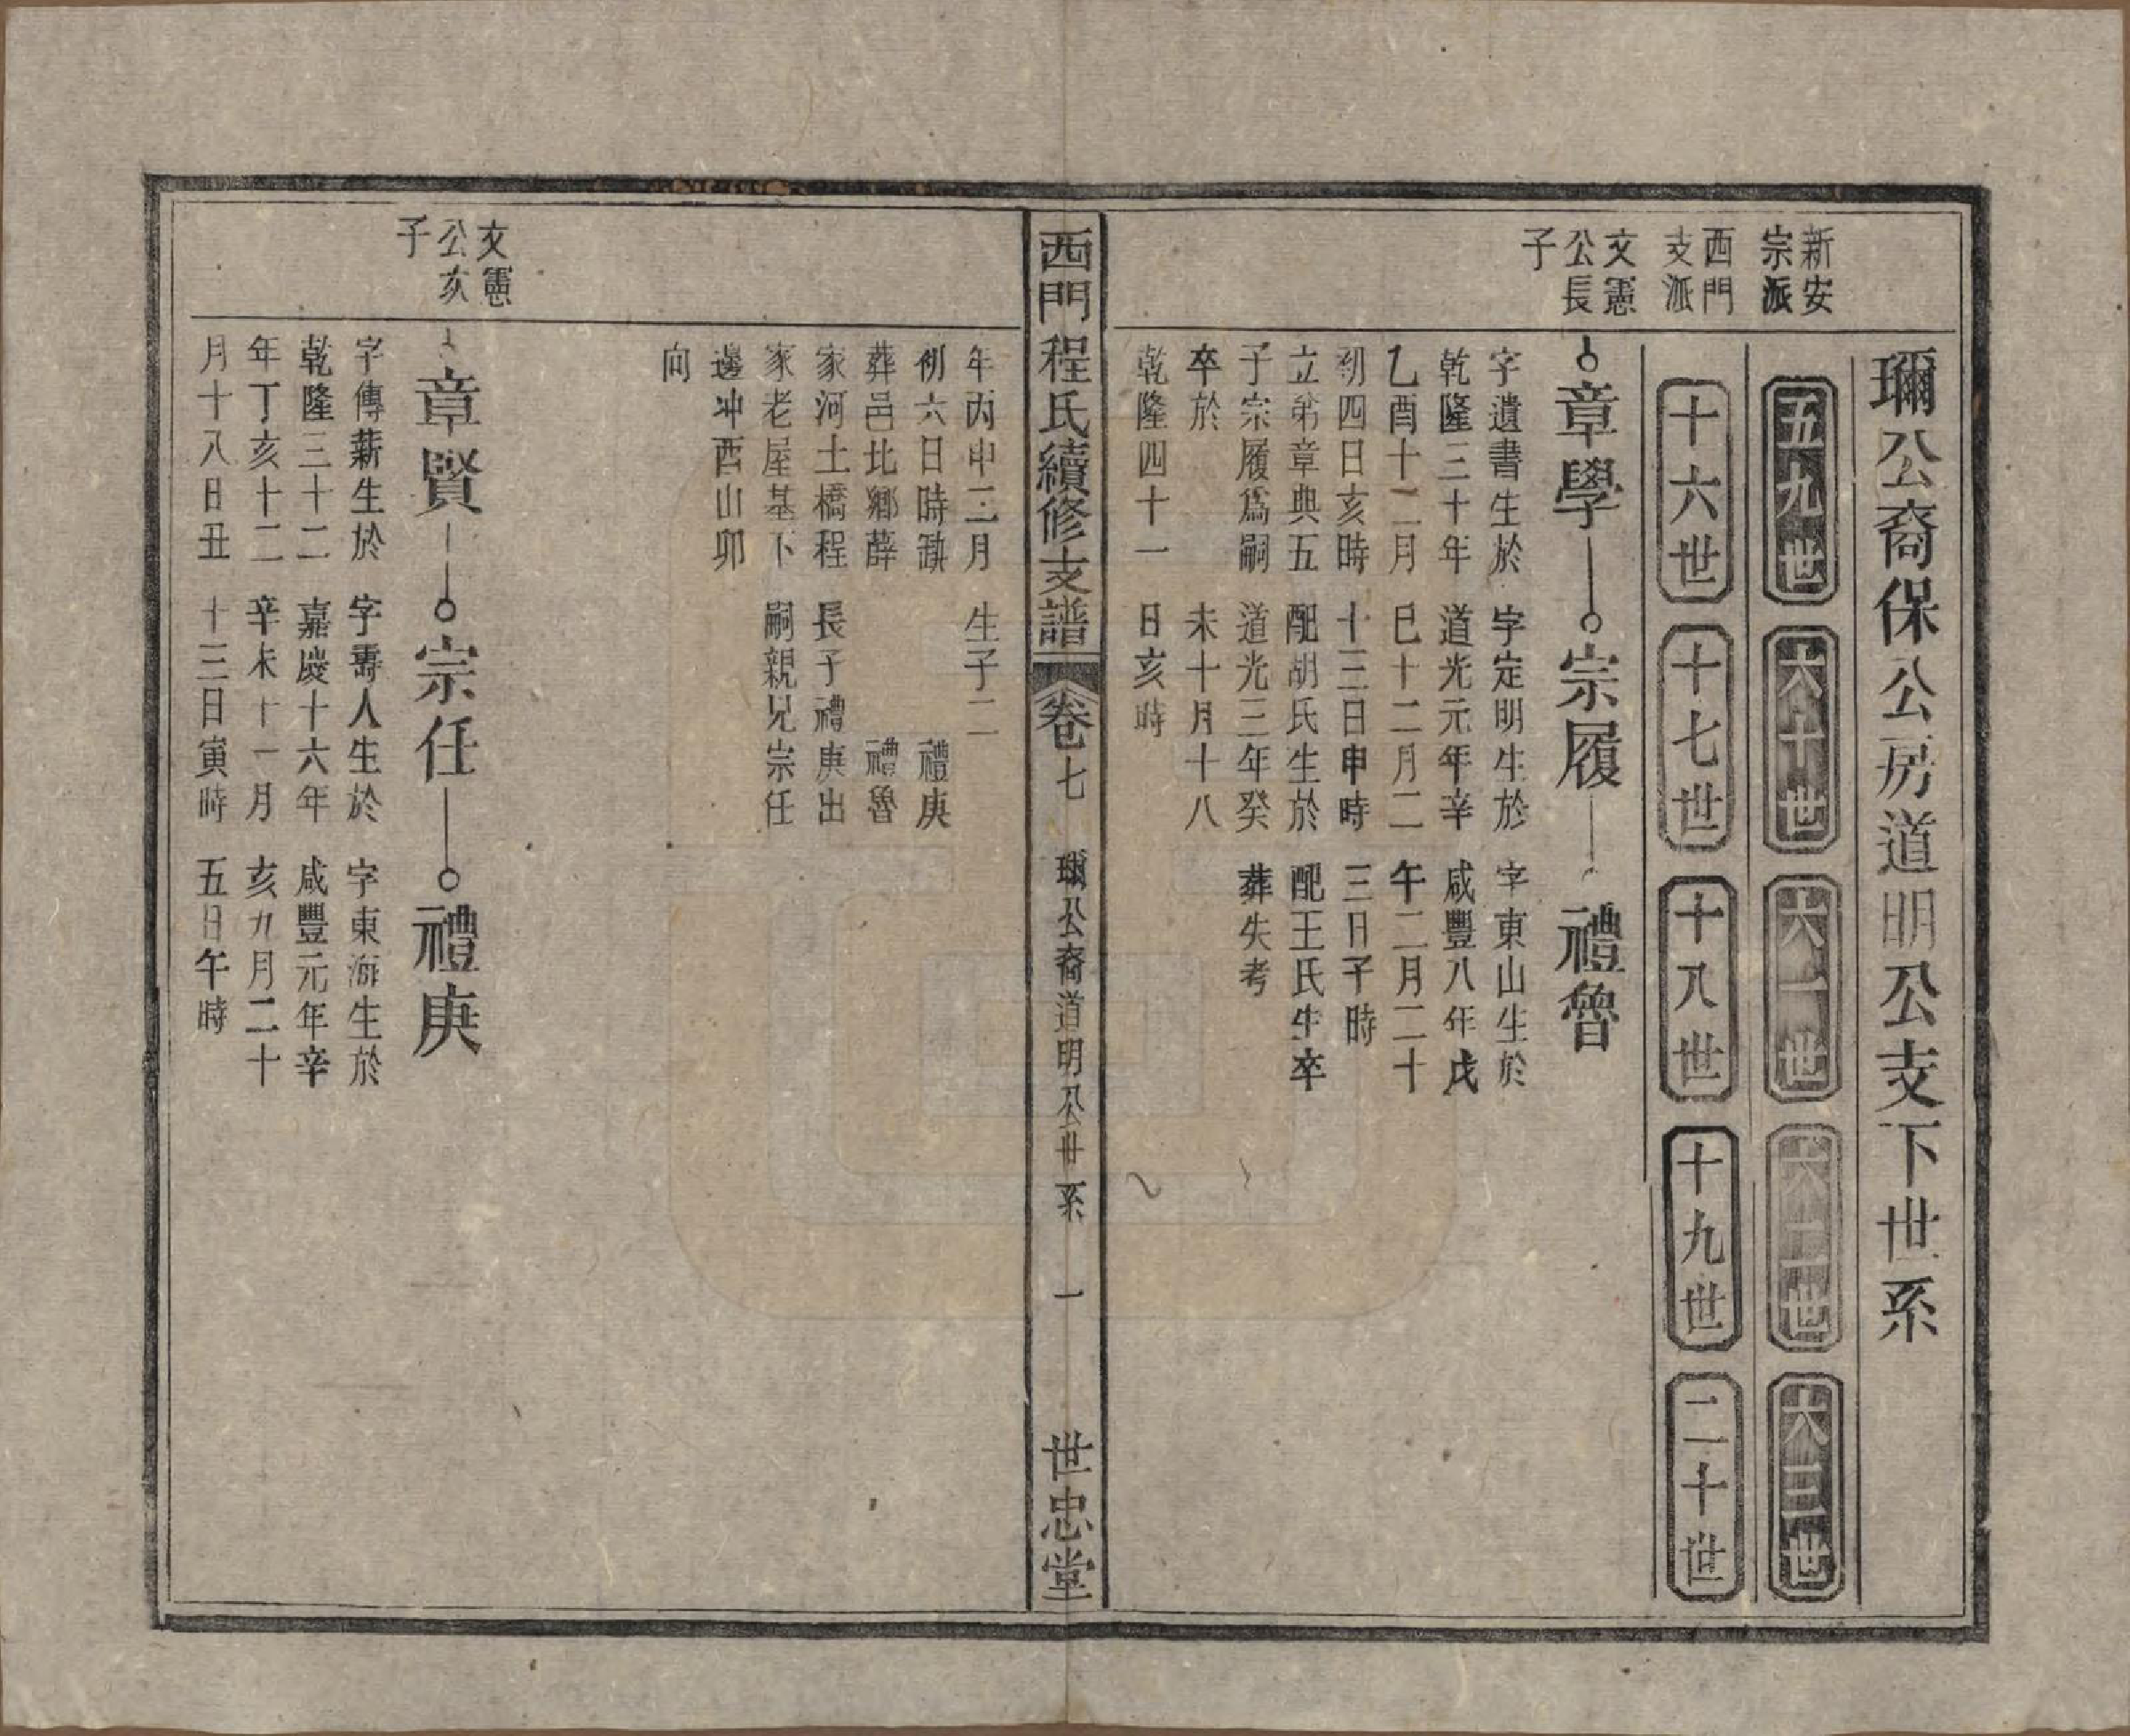 瓓公裔保公房道明公支下世系
新安
宗派
五九世
六十世
六一世
六二世
六三世
西門
支派
十六世
十七世
十八世
十九世
二十世
文憲
公長
子
章學
宗履
禮魯
字遺書生於
乾隆三十年
乙酉十二月
初四日亥時
立弟章典五
子宗履爲嗣
卒於
乾隆四十一
年丙申三月
初六日時瞋
葬邑北鄉薛
家河土橋程
家老屋基下
邊冲酉山卯
向
字定明生於
道光元年辛
巳十二月二
十三日申時
配胡氏生於
道光三年癸
未十月十八
日亥時
生子二
禮庚
禮魯
長子禮庚出
嗣親兄宗任
字東山生於
咸豐八年戊
午二月二十
三日子時
配王氏生卒
葬失考
西門程氏續修支譜
卷七
瓓公裔道明公世系
一
世忠堂
文憲
公亥
子
章賢
宗任
禮庚
字傳薪生於
乾隆三十二
年丁亥十二
月十八日丑
字壽人生於
嘉慶十六年
辛未十一月
十三日寅時
字東海生於
咸豐元年辛
亥九月二十
五日午時